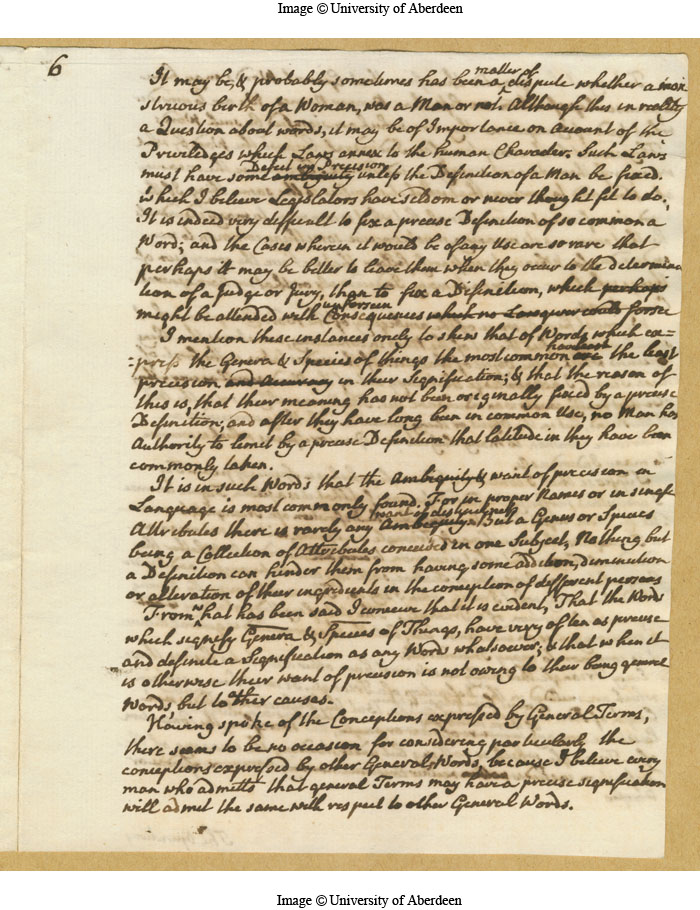 Image © University of Aberdeen
6
It may be, & probably sometimes has been a matter of dispute whether a mon
struous birth of a Woman, was a Man or not. Although this in reality
a Question about words, it may be of Importance on account of the
Priviledges which Laws annex to the human Character. Such Laws
must have some Defect in Precision ambiguity unless the Definition of a Man be fixed.
which I believe Legislators have seldom or never thought fit to do.
It is indeed very difficult to fix a precise Definition of so common a
Word; and the Cases wherein it would be of any Use are so rare that
perhaps it may be better to leave them when they occur to the determina
tion of a Judge or Jury, than to fix a Definition, which perhaps
might be attended with unforseen Consequences which no Lawgiver could forsee
I mention these instances only to shew that of Words which ex=
=press the Genera & Species of things the most common have not are the least
precision and accuracy in their Signification; & that the reason of
this is, that their meaning has not been originally fixed by a precise
Definition; and after they have long been in common Use, no Man has
Authority to limit by a precise Definition that latitude in they have been
commonly taken.
It is in such Words that the Ambiguity & want of precision in
Language is most commonly found. For in proper Names or in single
Attributes there is rarely any want of distinctness Ambiguity. But a Genus or Species
being a Collection of Attributes conceived in one Subject, Nothing but
a Definition can hinder them from having some addition, diminution
or alteration of their ingredients in the conception of different persons
From what has been said I conceive that it is evident, That the Words
which signify Genera & Species of Things, have very often as precise
and definite a Signification as any Words whatsoever; & that when it
is otherwise their want of precision is not owing to their being general
Words but to other causes.
Having spoke of the Conceptions expressed by General Terms,
there seems to be no occasion for considering particularly the
conceptions expressed by other General Words, because I believe every
man who admitts that general Terms may have a precise signification
will admit the same with respect to other General Words.
Image © University of Aberdeen